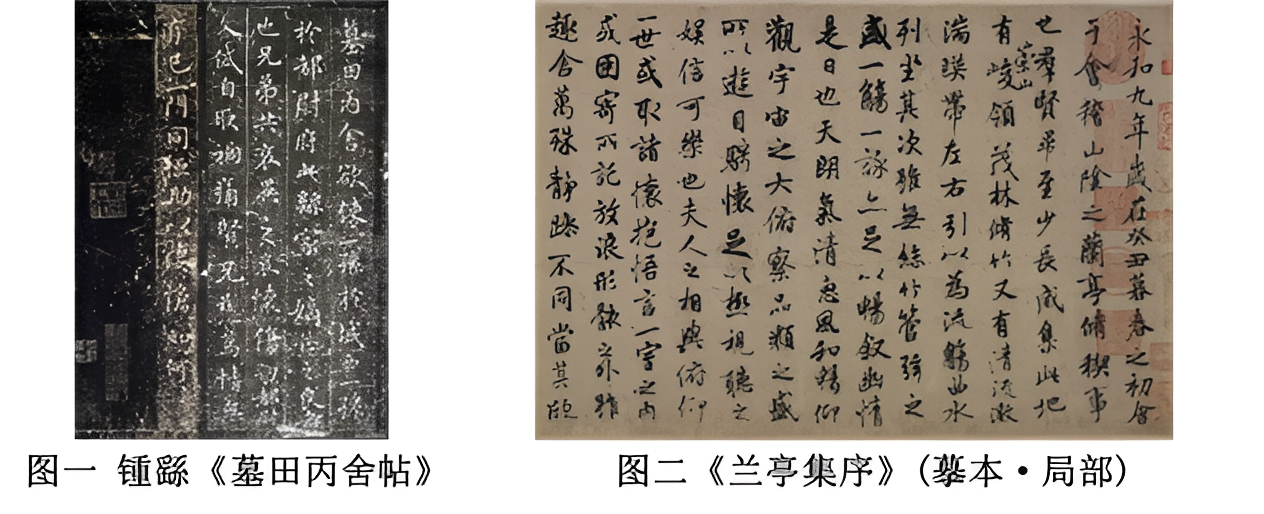 墓田丙舍欲使一孫於城西一孫
於都尉府此繇家之嫡正之良
也兄弟共哀異之哀懷傷切都
文岱自取禍痛賢兄慈篤情無
有已一門同恤助以悽愴如何
图一 锺繇《墓田丙舍帖》
永和九年歲在癸丑暮春之初會
于會稽山陰之蘭亭脩稧事
也羣賢畢至少長咸集此地
有崇山峻領茂林脩竹又有清流激
湍暎帶左右引以為流觴曲水
列坐其次雖無絲竹管弦之
盛一觴一詠亦足以暢敘幽情
是日也天朗氣清惠風和暢仰
觀宇宙之大俯察品類之盛
所以遊目騁懷足以極視聽之
娛信可樂也夫人之相與俯仰
一世或取諸懷抱悟言一室之內
或因寄所託放浪形骸之外雖
趣舍萬殊靜躁不同當其欣
图二《兰亭集序》(摹本·局部)